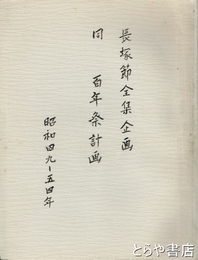 長塚節全集企画
同 百年祭計画
昭和四九-五四年
とらや書店